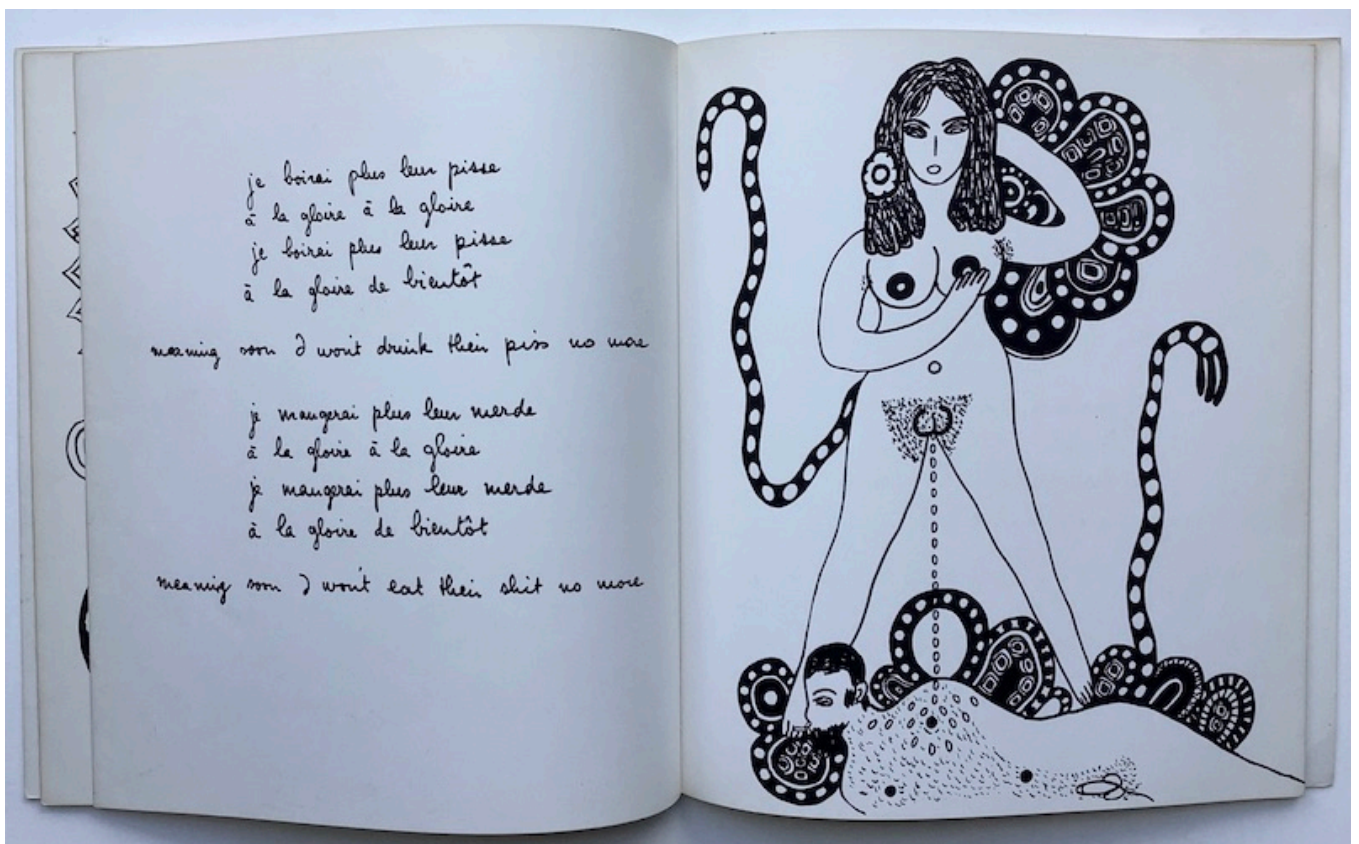 je boirai plus leur pisse
à la gloire à la gloire
je boirai plus leur pisse
à la gloire de bientôt
meaning soon I wont drink their piss no more
je mangerai plus leur merde
à la gloire à la gloire
je mangerai plus leur merde
à la gloire de bientôt
meaning soon I won't eat their shit no more